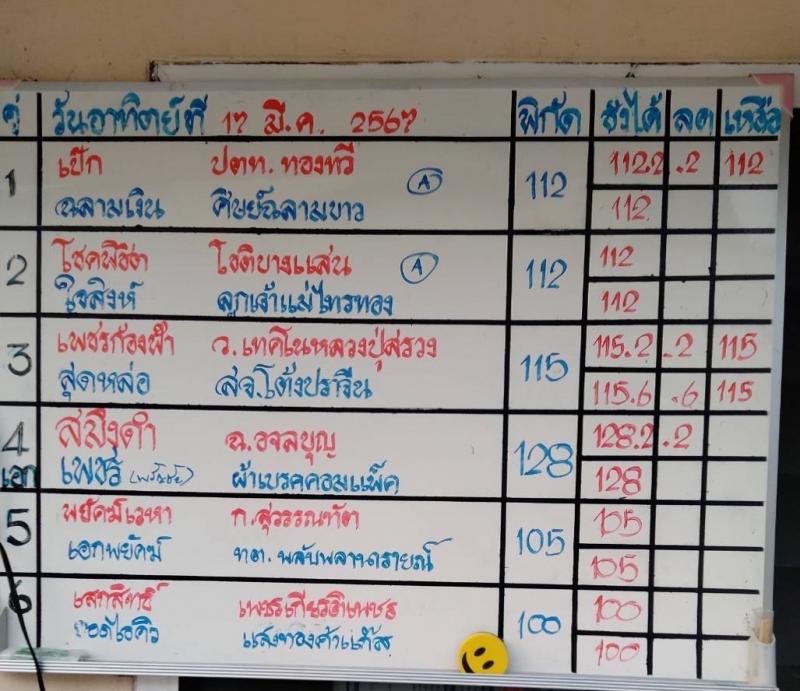 คู่ วันอาทิตย์ที่ 17 มี.ค. 2567 พิกัด ชั่งได้ ลด เหลือ
1 เป๊ก ปตท. ทองทวี A 112 112.2 .2 112
ฉลามเงิน ศิษย์ฉลามขาว 112
2 โชคพิชิต โชติบางแสน A 112 112
ใจสิงห์ ลูกเจ้าแม่ไทรทอง 112
3 เพชรก้องฟ้า ว.เทคโนหลวงปู่สรวง 115 115.2 .2 115
สุดหล่อ สจ.โต้งปราจีน 115.6 .6 115
4 สมิงดำ ฉ.อจลบุญ 128 128.2 .2
เอก เพชร ผ้าเบรคคอมแพ็ค 128
5 พยัคฆ์เวหา ก.สุวรรณทัต 105 105
เอกพยัคฆ์ ทต. พลับพลานารายณ์ 105
6 เสกสิทธิ์ เพชรเกียรติเพชร 100 100
ยอดไอคิว แสงทองคำแก๊ส 100